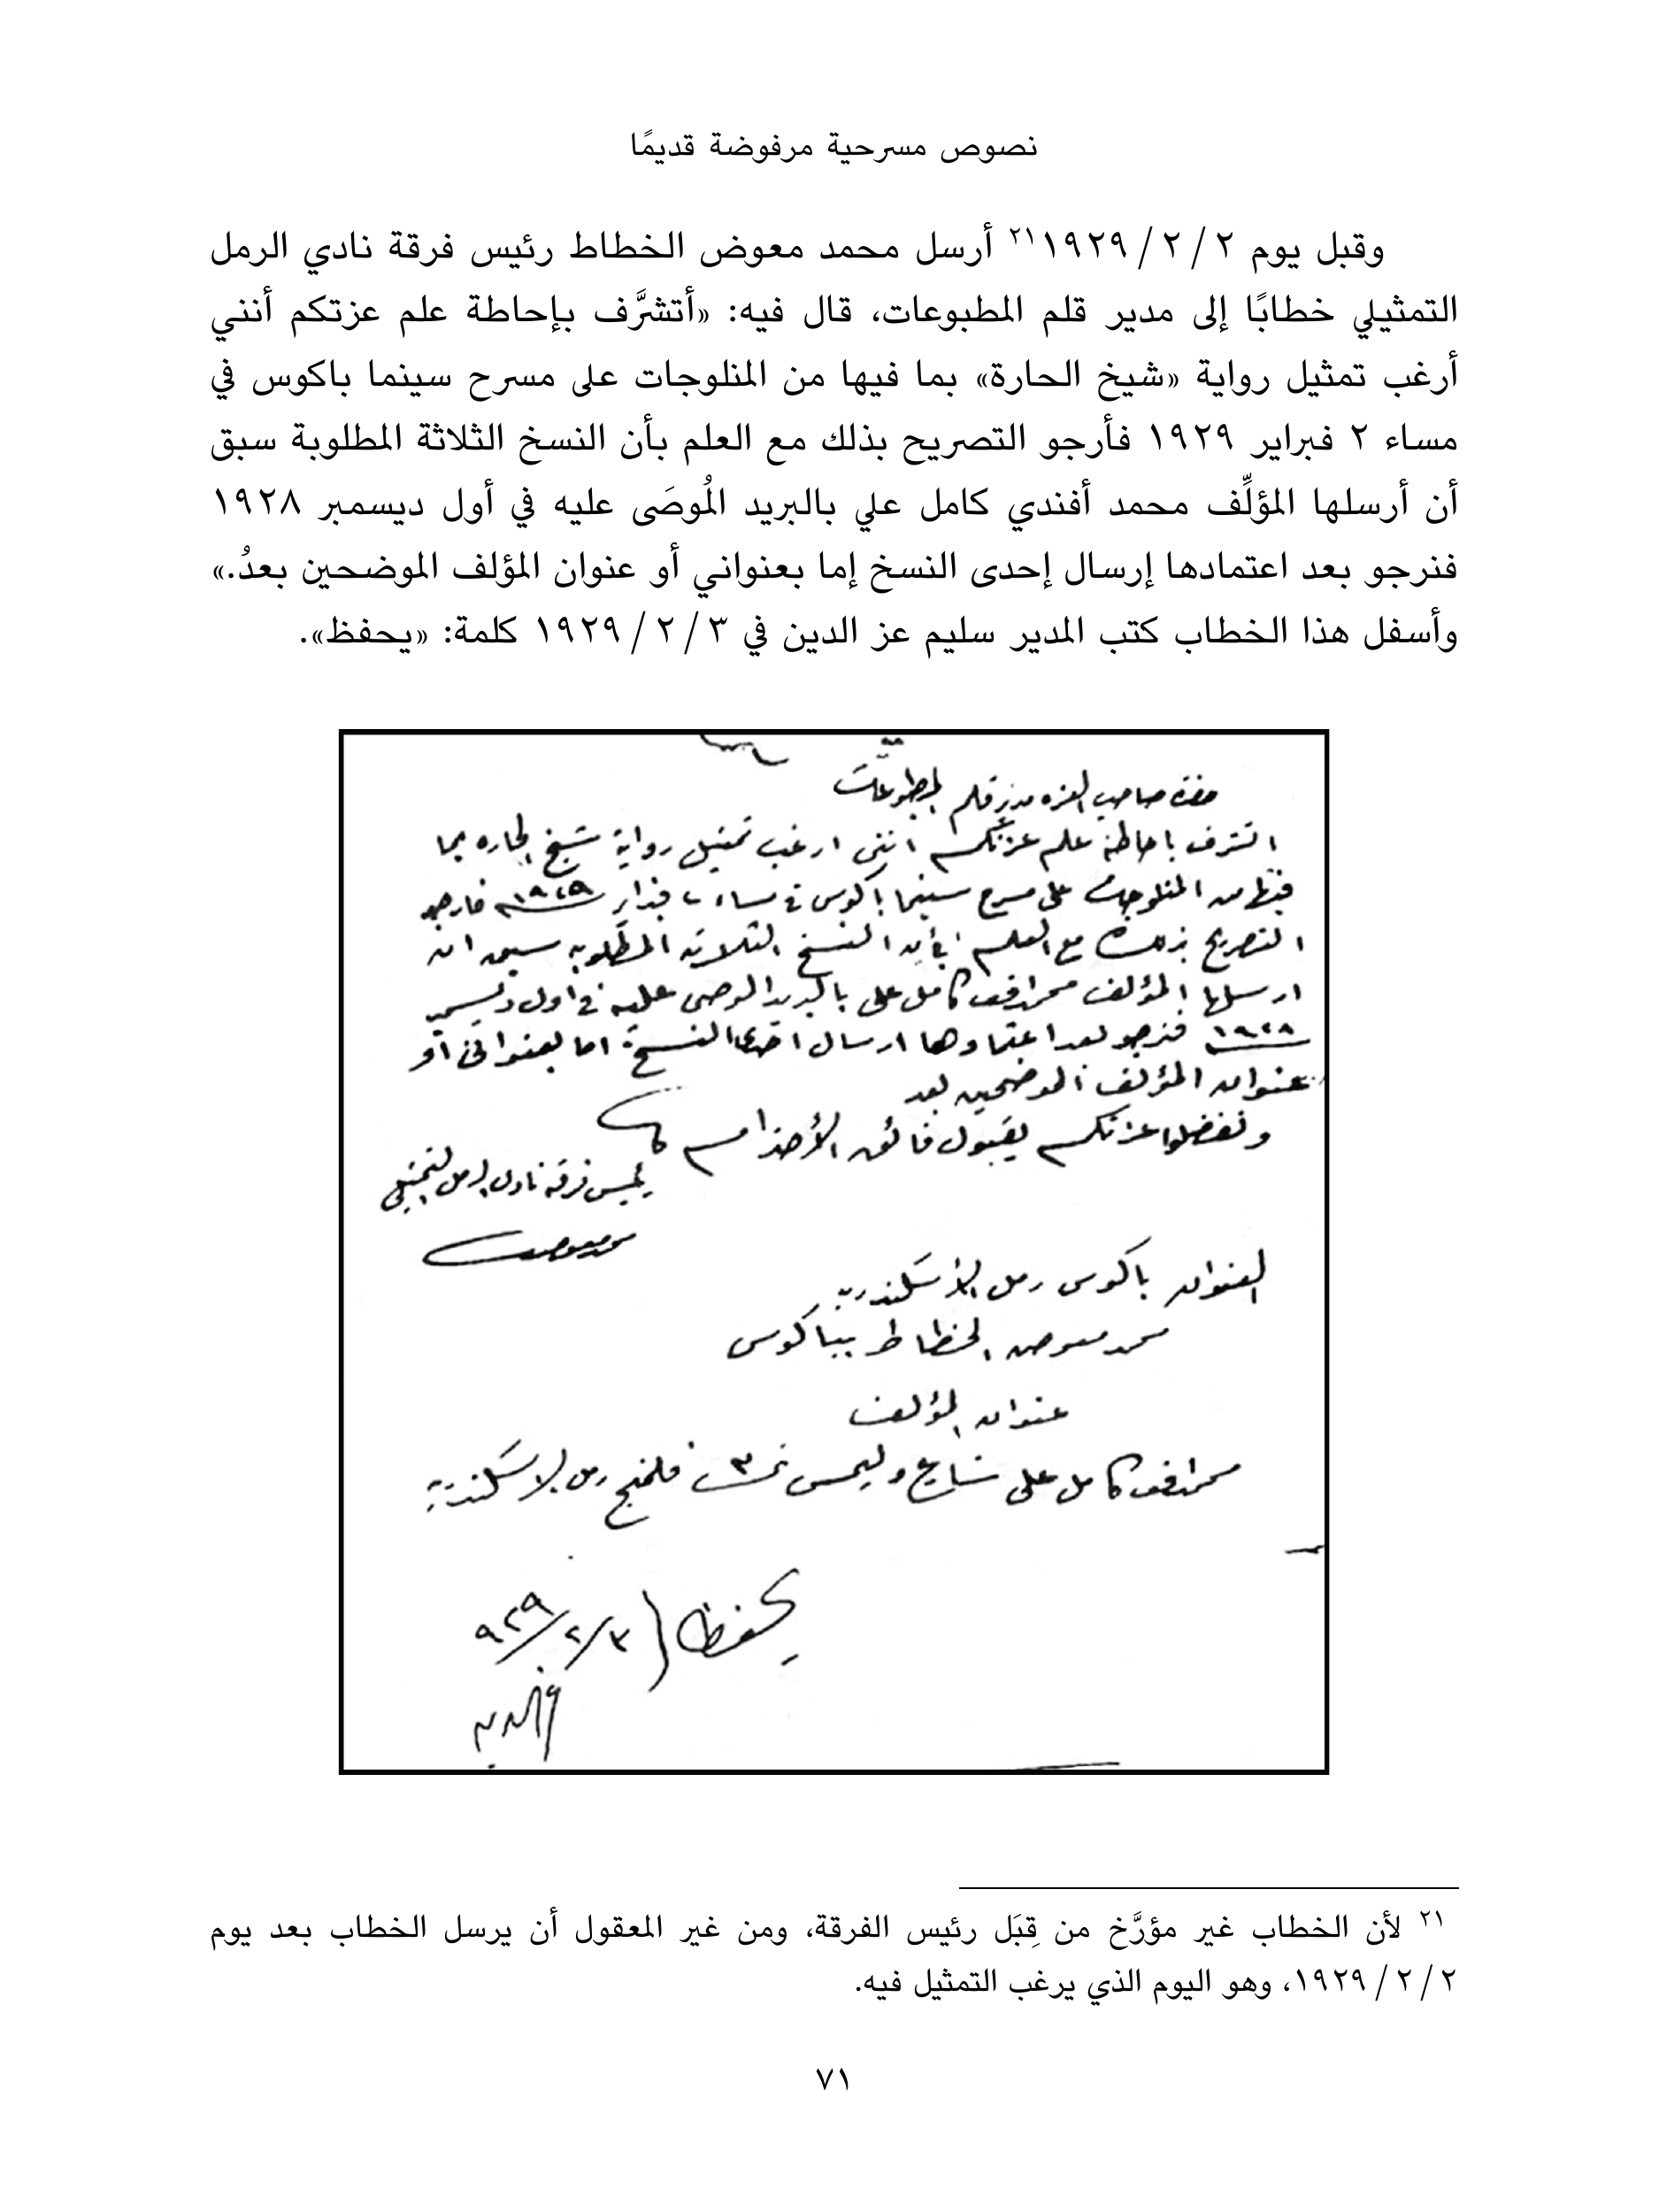 نصوص مسرحية مرفوضة قديمًا
وقبل يوم ٢ / ٢ / ١٩٢٩٢١ أرسل محمد معوض الخطاط رئيس فرقة نادي الرمل
التمثيلي خطابًا إلى مدير قلم المطبوعات، قال فيه: «أتشرَّف بإحاطة علم عزتكم أنني
أرغب تمثيل رواية «شيخ الحارة» بما فيها من المنلوجات على مسرح سينما باكوس في
مساء ٢ فبراير ١٩٢٩ فأرجو التصريح بذلك مع العلم بأن النسخ الثلاثة المطلوبة سبق
أن أرسلها المؤلِّف محمد أفندي كامل علي بالبريد المُوصَى عليه في أول ديسمبر ١٩٢٨
فنرجو بعد اعتمادها إرسال إحدى النسخ إما بعنواني أو عنوان المؤلف الموضحين بعدُ.»
وأسفل هذا الخطاب كتب المدير سليم عز الدين في ٣ / ٢ / ١٩٢٩ كلمة: «يحفظ».
حضرة صاحب العزه مدير قلم المطبوعات
اتشرف باحاطة علم عزتكم اننى ارغب تمثيل رواية شيخ الحاره بما
فيها من المنلوجات على مسرح سينما باكوس في مساء ٢ فبراير ١٩٢٩ فارجو
التصريح بذلك مع العلم بأن النسخ الثلاثه المطلوبه سبق ان
ارسلها المؤلف محمد افندى كامل على بالبريد الموصى عليه في اول ديسمبر
١٩٢٨ فنرجو بعد اعتمادها ارسال احدى النسخ اما بعنوانى أو
عنوان المؤلف الموضحين بعد
وتفضلوا عزتكم بقبول فائق الأحترام
رئيس فرقة نادى الرمل التمثيلى
محمد معوض
العنوان باكوس رمل الأسكندريه
محمد معوض الخطاط بباكوس
عنوان المؤلف
محمد افندى كامل على شارع وليمس نمرة ٣ فلمنج رمل الاسكندريه
يحفظ ٣/٢/٩٢٩
٢١ لأن الخطاب غير مؤرَّخ من قِبَل رئيس الفرقة، ومن غير المعقول أن يرسل الخطاب بعد يوم
٢ / ٢ / ١٩٢٩، وهو اليوم الذي يرغب التمثيل فيه.
٧١